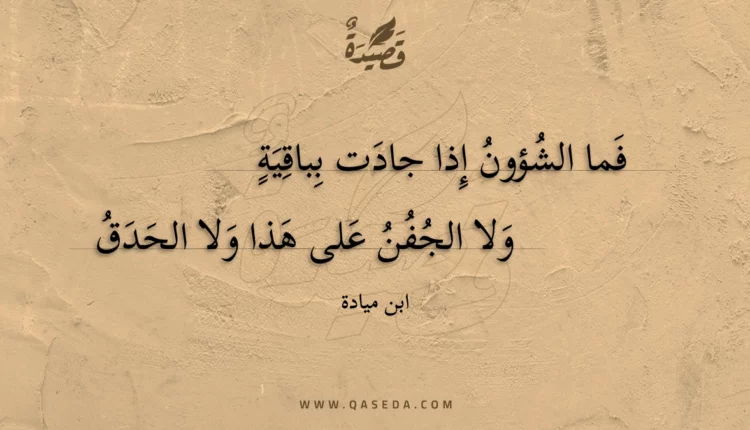 قَصِيدَةٌ
فَما الشُؤونُ إِذا جادَت بِباقِيَةٍ
وَلا الجُفُنُ عَلى هَذا وَلا الحَدَقُ
ابن ميادة
WWW.QASEDA.COM